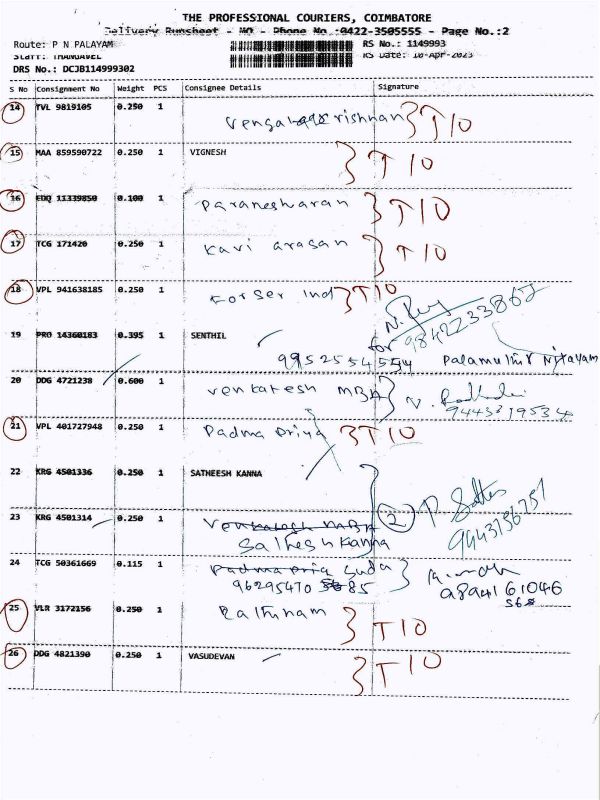 THE PROFESSIONAL COURIERS, COIMBATORE
Delivery Runsheet - MO - Phone No.:0422-3505555 - Page No.:2
Route: P N PALAYAM RS No.: 1149993
Staff: THANGAVEL RS Date: 10-Apr-2023
DRS No.: DCJB114999302
S No Consignment No Weight PCS Consignee Details Signature
14 TVL 9819105 0.250 1 rishnan } T10
15 MAA 859590722 0.250 1 VIGNESH } T10
16 EDQ 11339850 0.100 1 Paranesharan } T10
17 TCG 171420 0.250 1 Kavi arasan } T10
18 VPL 941638185 0.250 1 Forser Ind } T10
19 PRO 14360183 0.395 1 SENTHIL for 9842233862
9952554554 Palamuthir Nilayam
20 DDG 4721238 0.600 1 Venkatesh MBA
9443319534
21 VPL 401727948 0.250 1 Padma Priya } T10
22 KRG 4501336 0.250 1 SATHEESH KANNA
23 KRG 4501314 0.250 1 Venkatesh MBA 2 P 9443736751
Satheshkanna
24 TCG 50361669 0.115 1 Padma Pria Suda
96295470 85 9894161046
568
25 VLR 3172156 0.250 1 Rathinam } T10
26 DDG 4821390 0.250 1 VASUDEVAN } T10